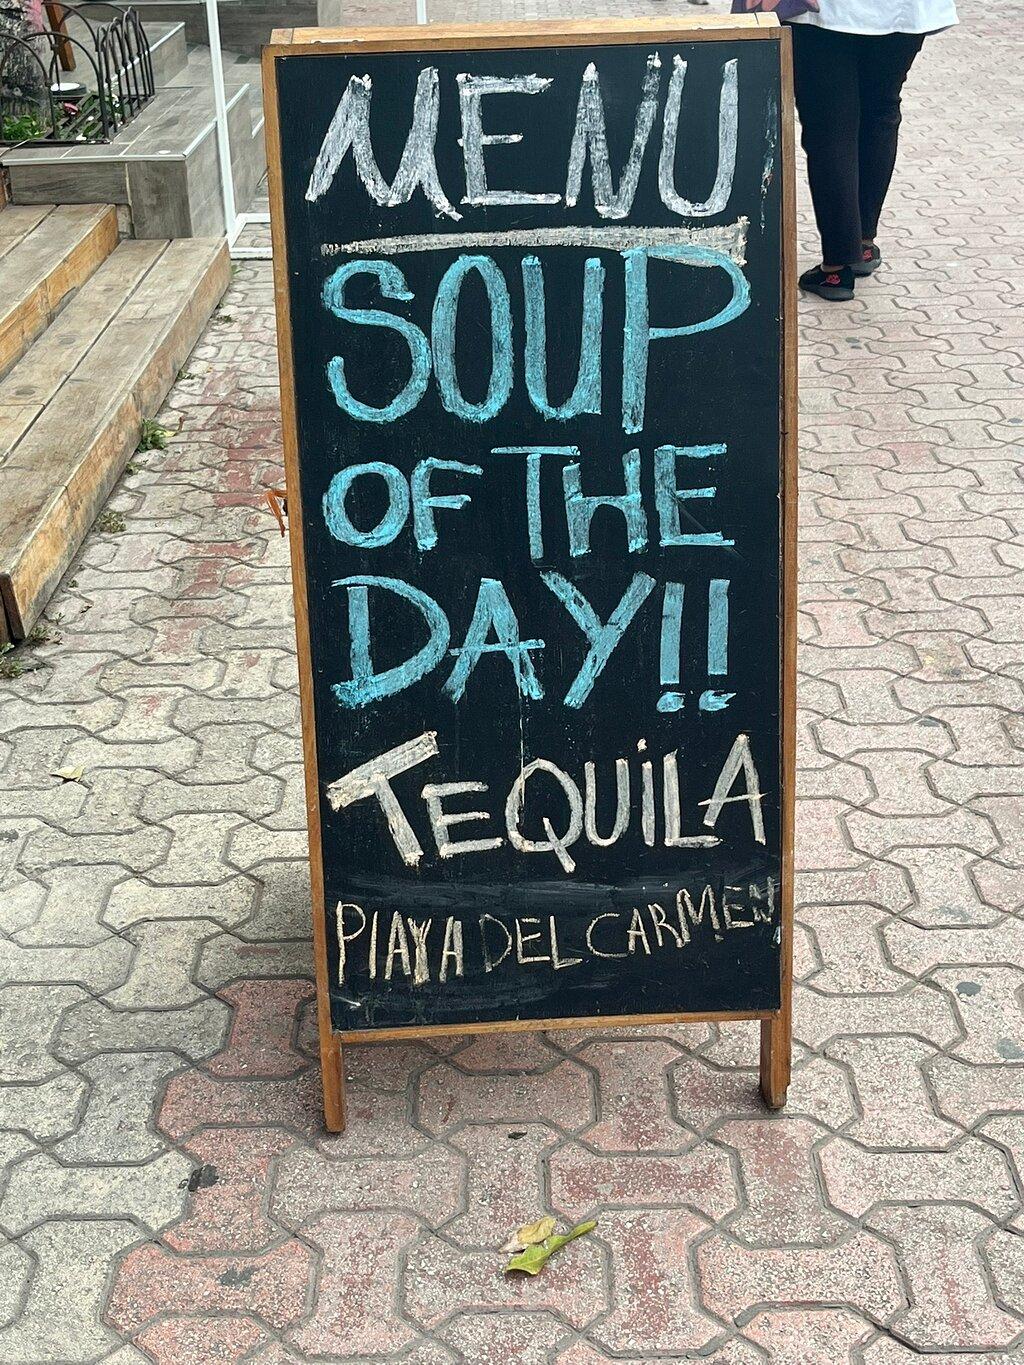 MENU
SOUP
OF THE
DAY!!
TEQUiLA
PLAYA DEL CARMEN